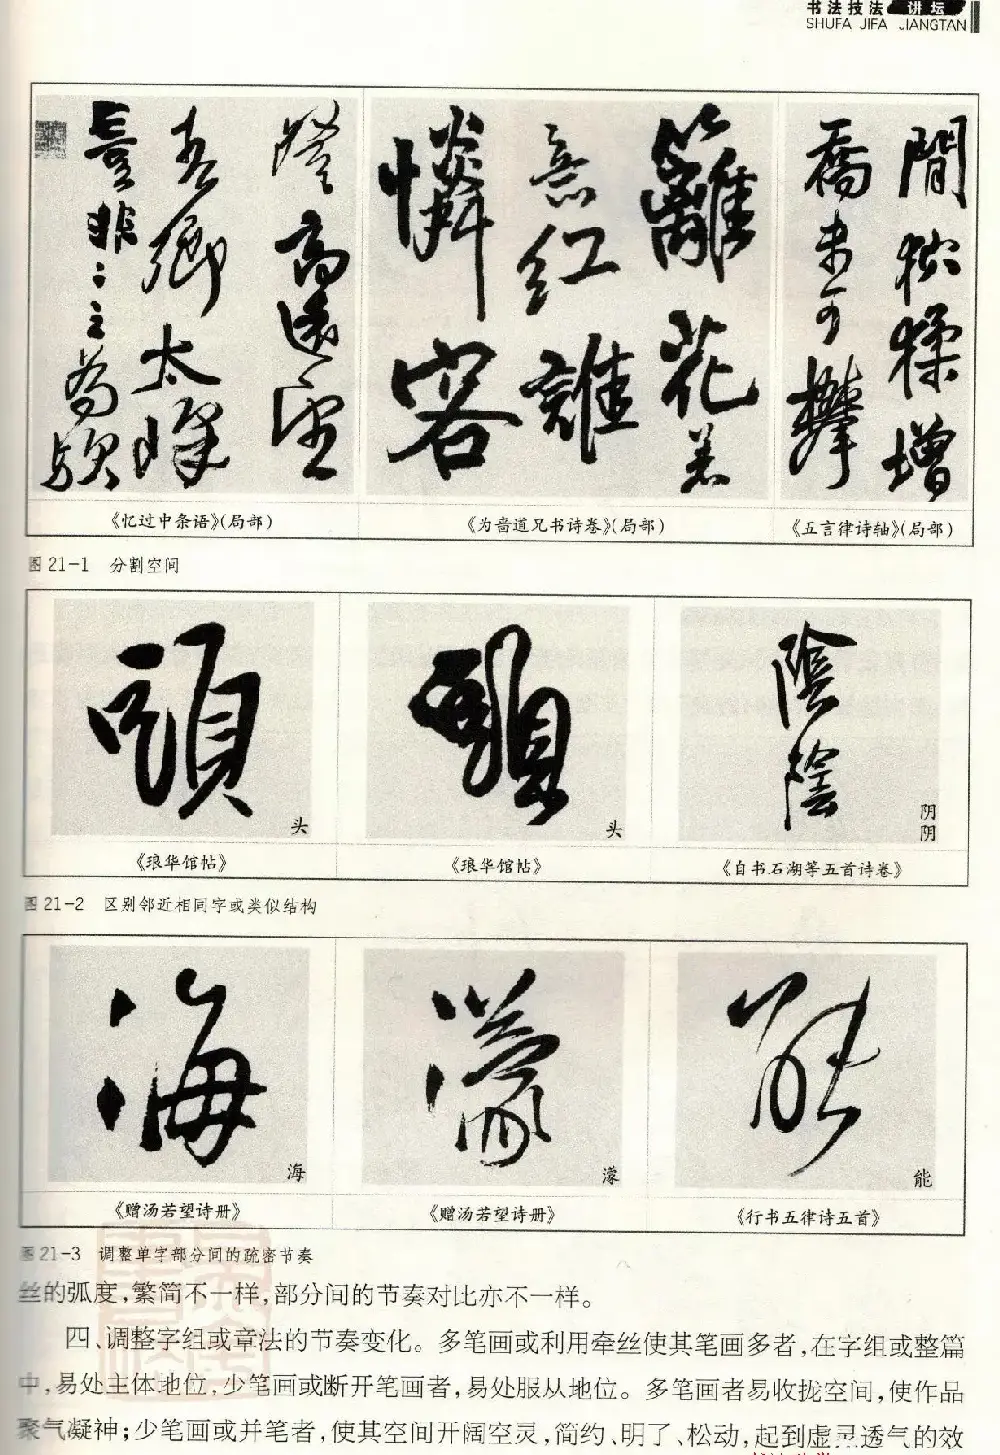 书法技法 讲坛
SHUFA JIFA JIANGTAN
高远
太峰
非
之
篱花
意红难
怜容
间
增
未可
《忆过中条语》(局部)
《为啬道兄书诗卷》(局部)
《五言律诗轴》(局部)
图 21-1 分割空间
頭
頭
陰
陰
头
头
阴
阴
《琅华馆帖》
《琅华馆帖》
《自书石湖等五首诗卷》
图 21-2 区别邻近相同字或类似结构
海
濛
能
海
濛
能
《赠汤若望诗册》
《赠汤若望诗册》
《行书五律诗五首》
图 21-3 调整单字部分间的疏密节奏
丝的弧度,繁简不一样,部分间的节奏对比亦不一样。
四、调整字组或章法的节奏变化。多笔画或利用牵丝使其笔画多者,在字组或整篇
中,易处主体地位,少笔画或断开笔画者,易处服从地位。多笔画者易收拢空间,使作品
聚气凝神;少笔画或并笔者,使其空间开阔空灵,简约、明了、松动,起到虚灵透气的效